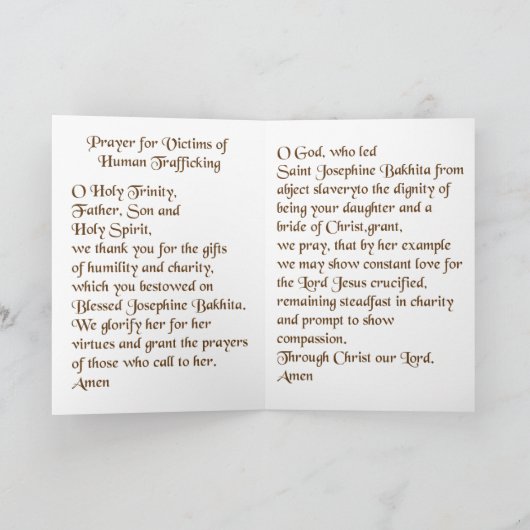 Prayer for Victims of
Human Trafficking
O Holy Trinity,
Father, Son and
Holy Spirit,
we thank you for the gifts
of humility and charity,
which you bestowed on
Blessed Josephine Bakhita.
We glorify her for her
virtues and grant the prayers
of those who call to her.
Amen
O God, who led
Saint Josephine Bakhita from
abject slaveryto the dignity of
being your daughter and a
bride of Christ,grant,
we pray, that by her example
we may show constant love for
the Lord Jesus crucified,
remaining steadfast in charity
and prompt to show
compassion.
Through Christ our Lord.
Amen